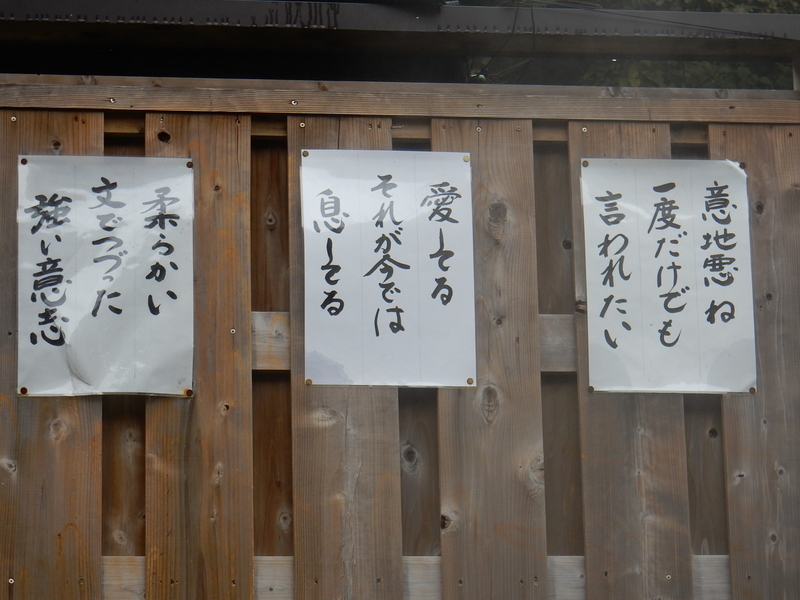 意地悪ね
一度だけでも
言われたい
愛してる
それが今では
息してる
柔らかい
文でつづった
強い意志